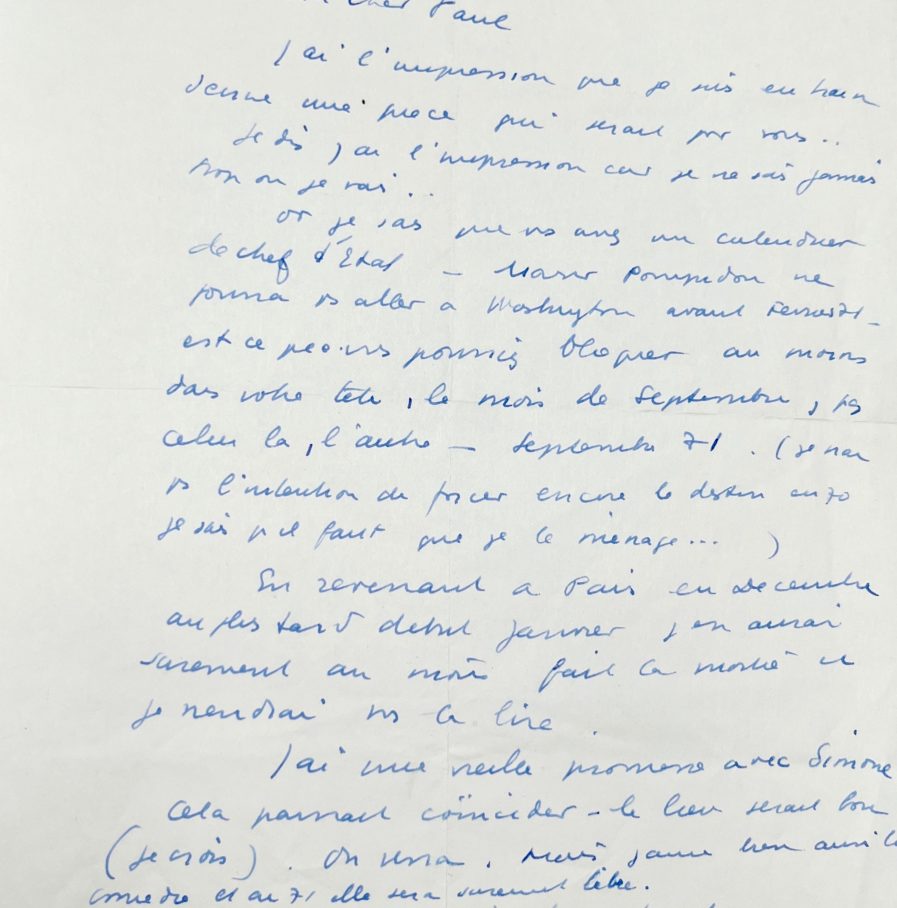 cher Paul
J'ai l'impression que je suis en train
d'ecrire une piece qui serait pr vous..
Je dis j'ai l'impression car je ne sais jamais
trop ou je vais..
or je sais que vs avez un calendrier
de chef d'Etat — Pompidou ne
pourra vs aller a Washington avant Fevrier 71 —
est ce que vs pourriez bloquer au moins
dans votre tete, le mois de Septembre, ps
celui la, l'autre — Septembre 71. (je n'ai
ps l'intention de forcer encore le destin en 70
je sais qu'il faut que je le menage... )
En revenant a Paris en Decembre
au plus tard debut Janvier j'en aurai
surement au mois fait la moitié et
je viendrai vs la lire
J'ai une vieille promesse avec Simone
Cela pourrait coïncider - le lieu serait bon
(je crois). On verra. Mais j'aime bien aussi la
comedie et en 71 elle sera surement libre.